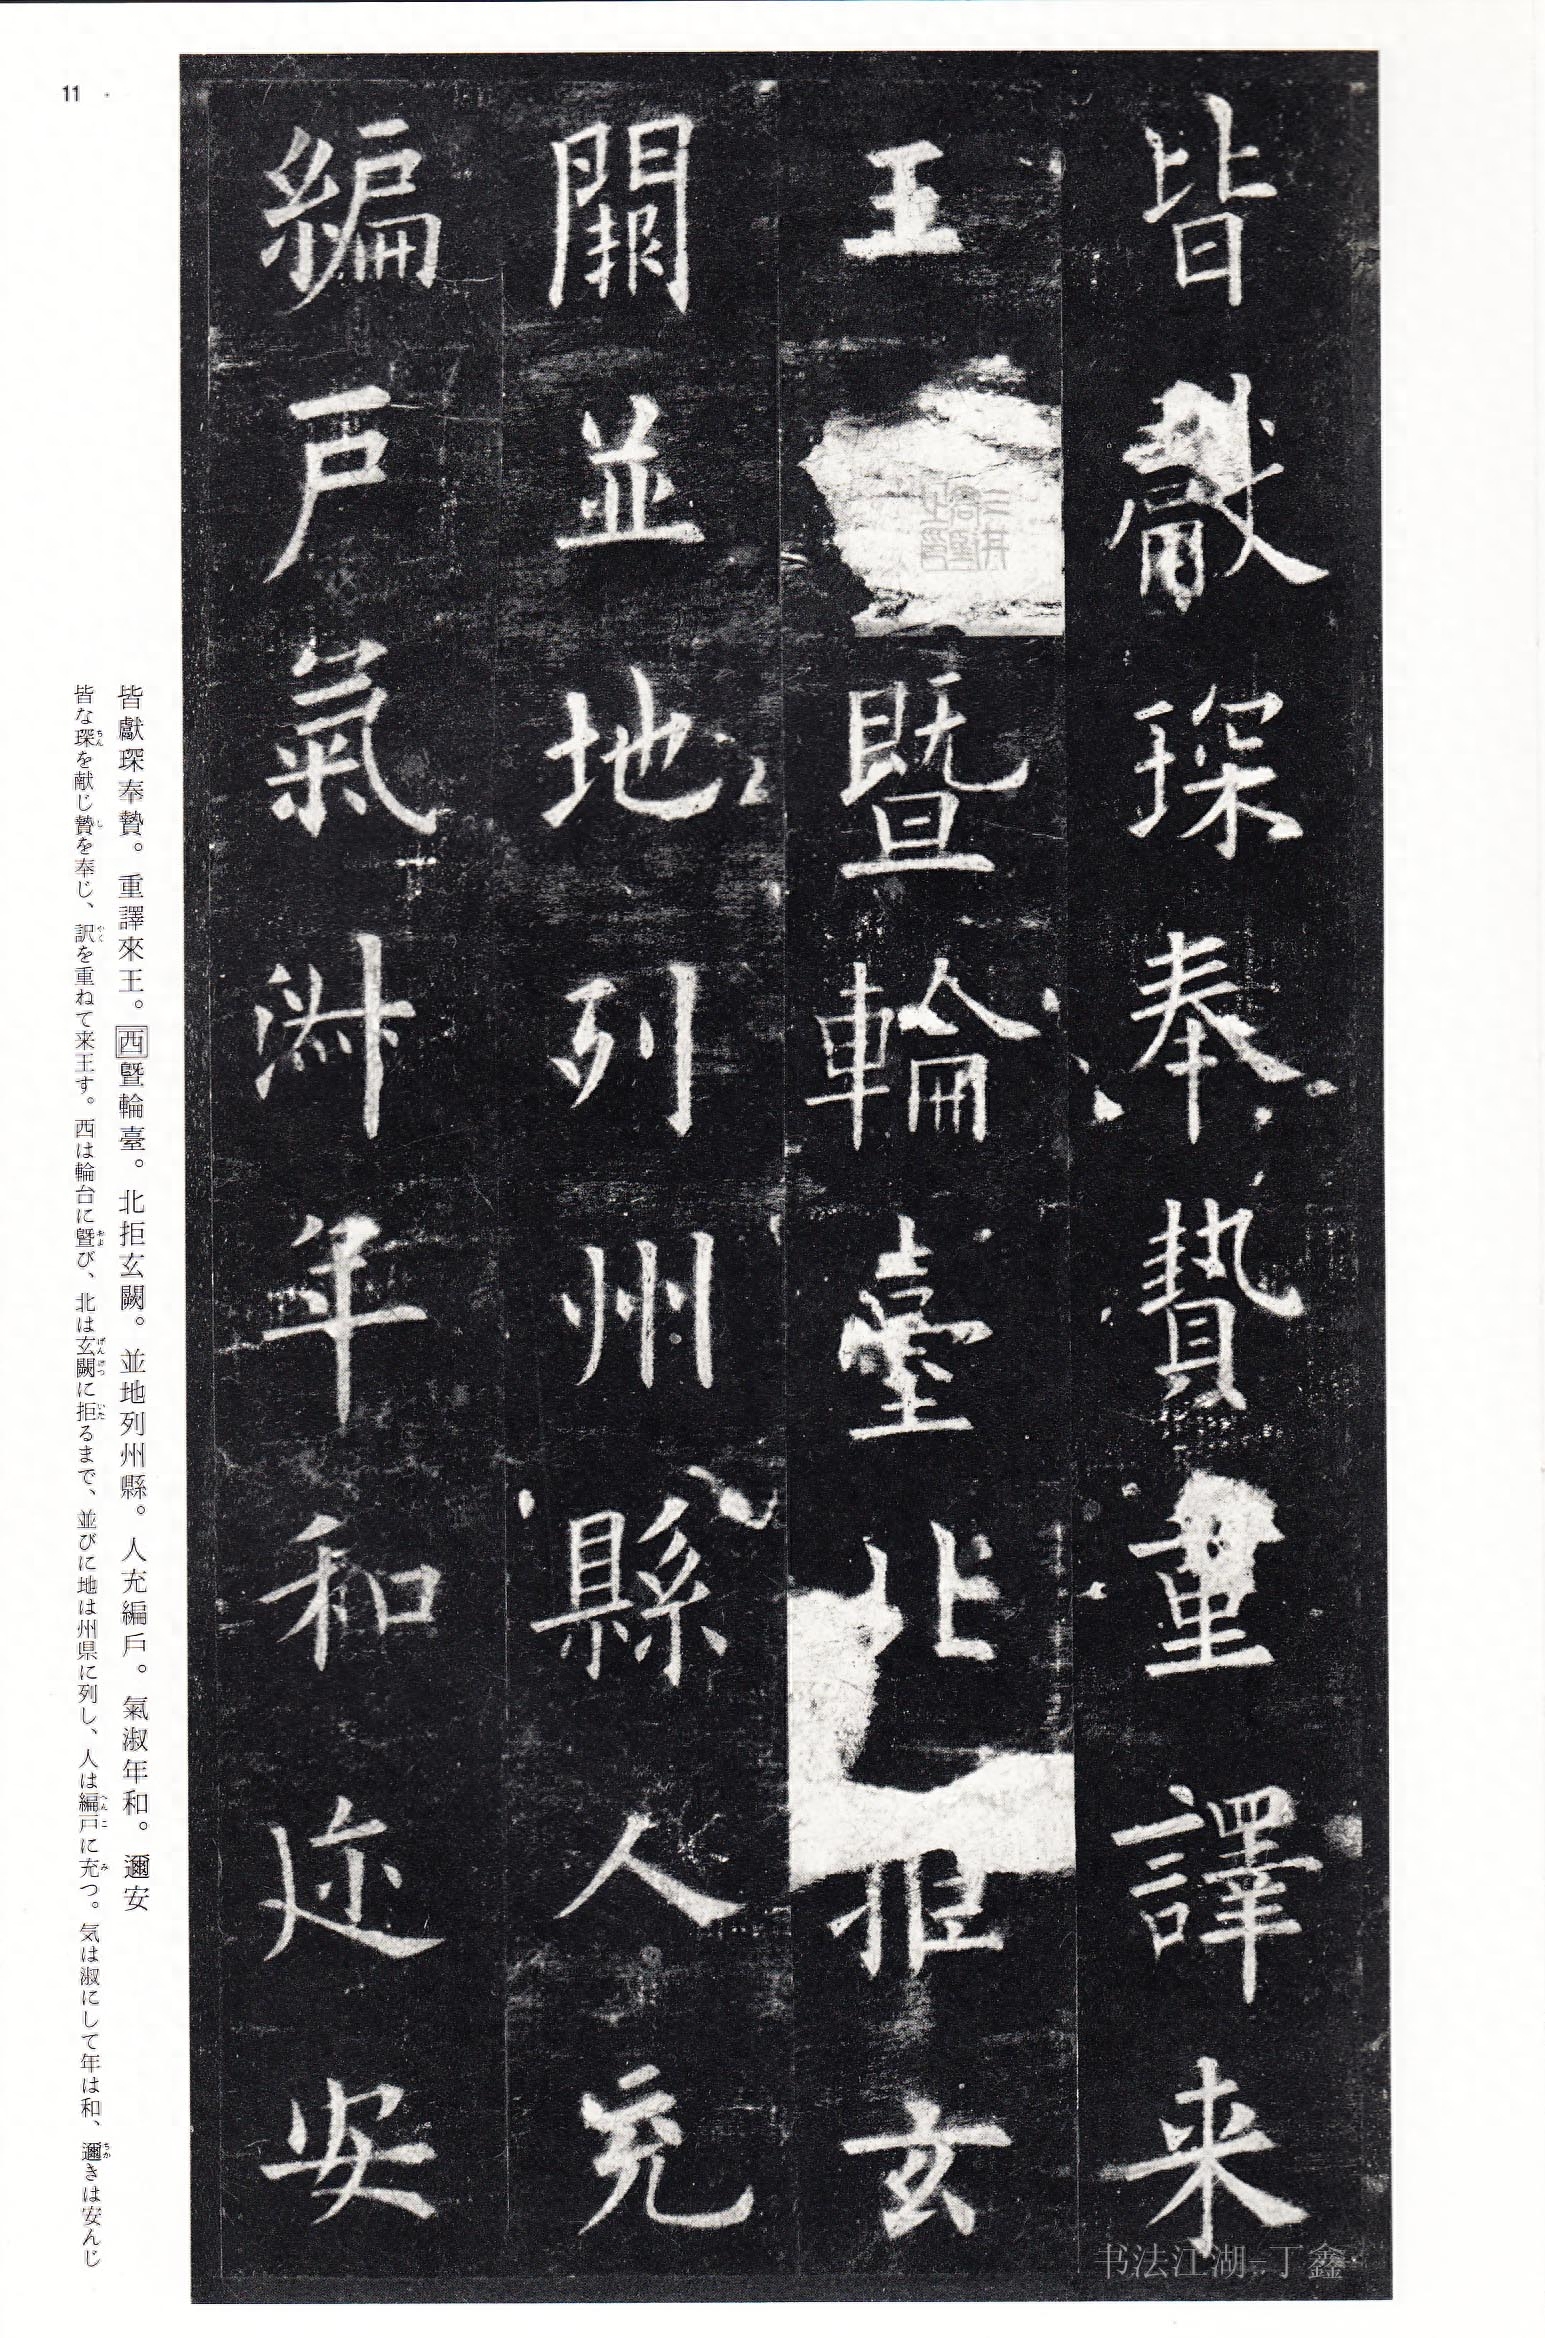 皆獻琛奉贄重譯来
王暨輪臺北拒玄
闕並地列州縣人充
編戸氣淑年和迩安
皆獻琛奉贄。重譯來王。西曁輪臺。北拒玄闕。並地列州縣。人充編戶。氣淑年和。邇安
皆な琛ちんを献じ贄しを奉じ、訳やくを重ねて来王す。西は輪台に曁および、北は玄闕げんけつに拒いたるまで、並びに地は州県に列し、人は編戸へんこに充みつ。気は淑にして年は和、邇ちかきは安んじ
11
书法江湖=丁鑫